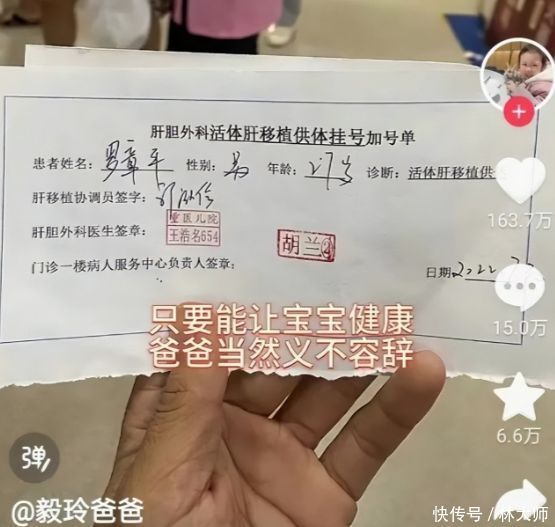 肝胆外科活体肝移植供体挂号加号单
患者姓名： 性别：男 年龄：27岁 诊断：活体肝移植供
肝移植协调员签字：
重医儿院
肝胆外科医生签章： 王浩名654 胡兰②
门诊一楼病人服务中心负责人签章： 日期2022
只要能让宝宝健康
爸爸当然义不容辞
163.7万
15.0万
6.6万
弹
@毅玲爸爸
快传号 / 林大师